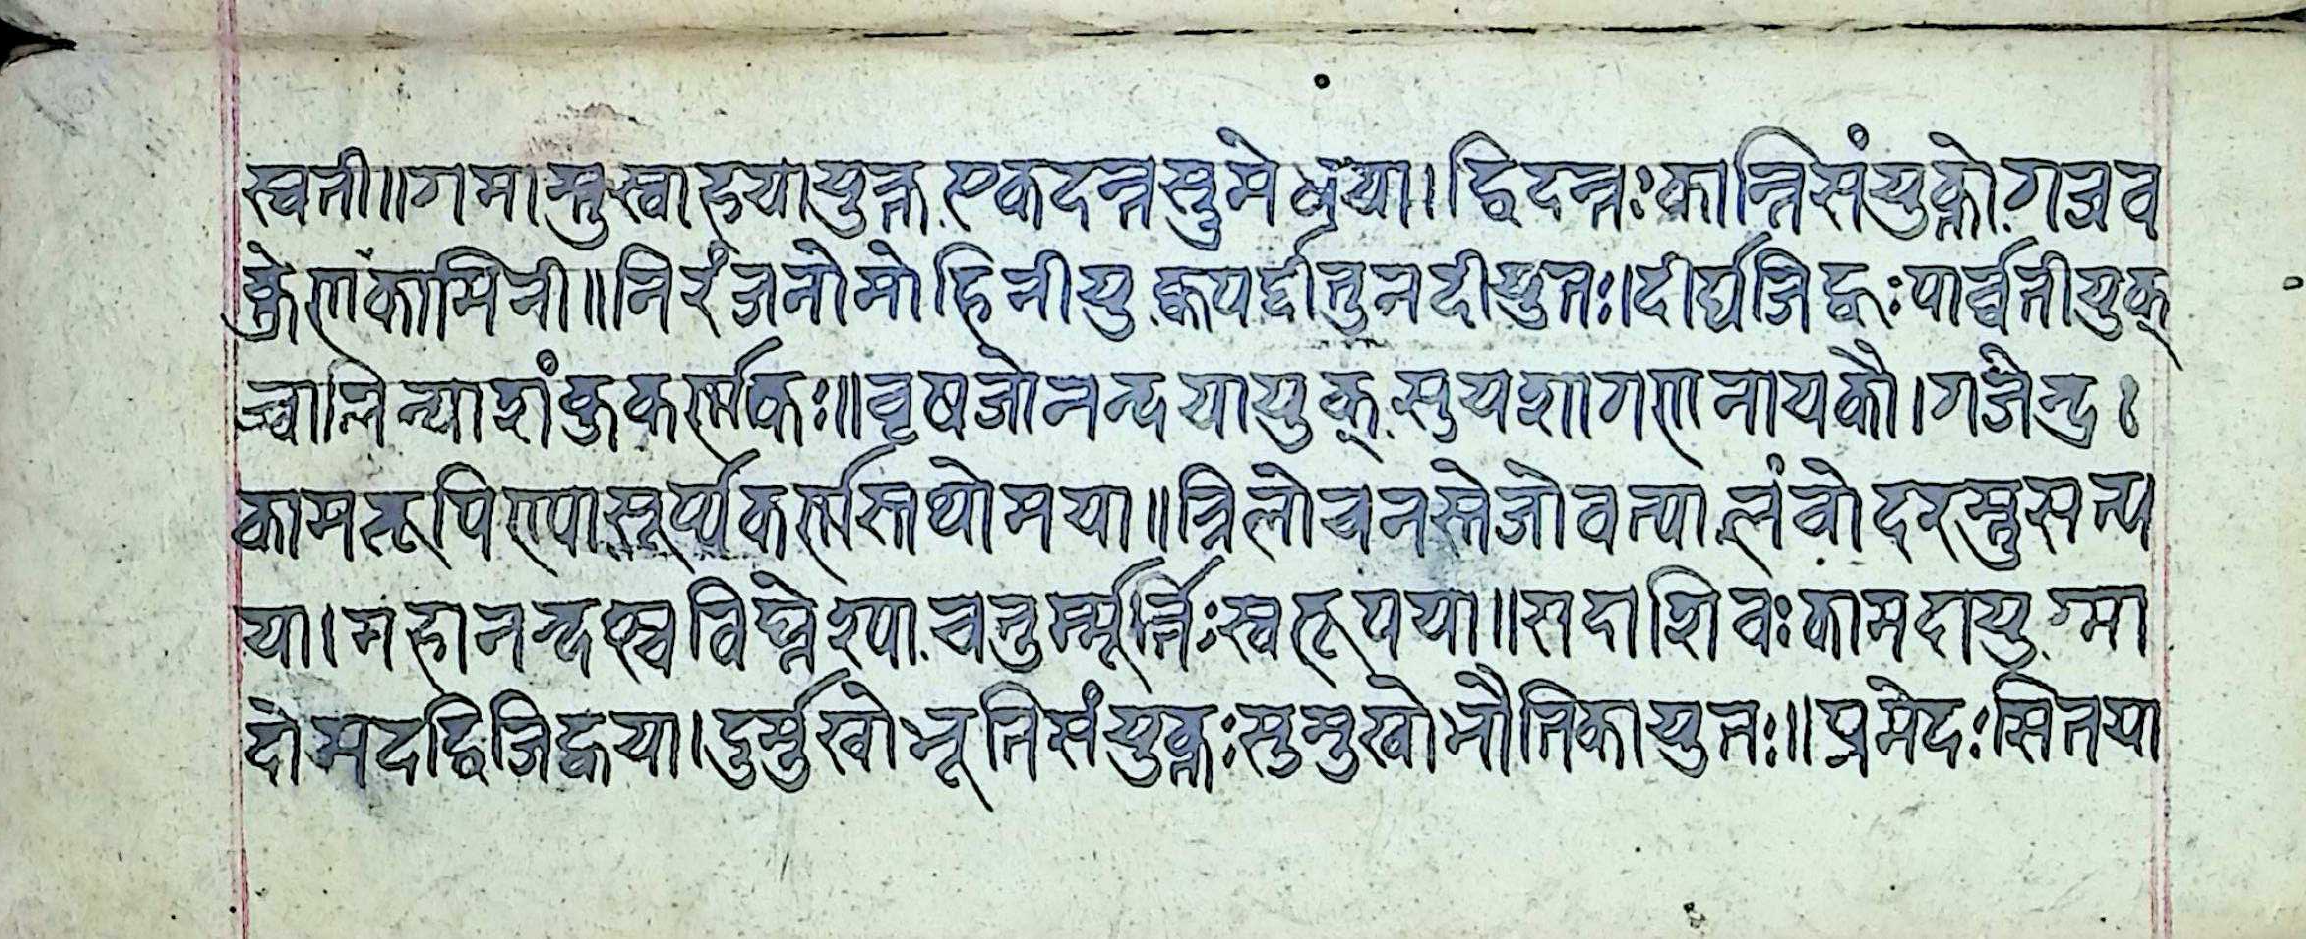 स्वती॥गमास्तुस्वाहयायुक्त.एकदन्तस्तुमेधया।द्विदन्तःकान्तिसंयुक्तो.गजव
क्त्रेणकामिनी॥निरंजनोमोहिनीयु.क्कपर्द्दीतुनदीयुतः।दीर्घजिह्वःपार्व्वतीयुक्
ज्वालिन्याशंकुकर्ण्णकः॥वृषजोनन्दयायुक्.सुयशागणनायकौ।गजेन्द्रः
कामरूपिण्या.सूर्प्पकर्ण्णस्तथोमया॥त्रिलोचनस्तेजोवत्या.लंवोदरस्तुसत्य
या।महानन्दश्चविघ्नेश्या.चतुर्म्मूर्त्तिःस्वरूपया॥सदाशिवःकामदायु.ग्मा
दोमदद्विजिह्वया।दुर्मुखोभूतिसंयुक्तःसुमुखोभौतिकायुतः॥प्रमेदःसितया